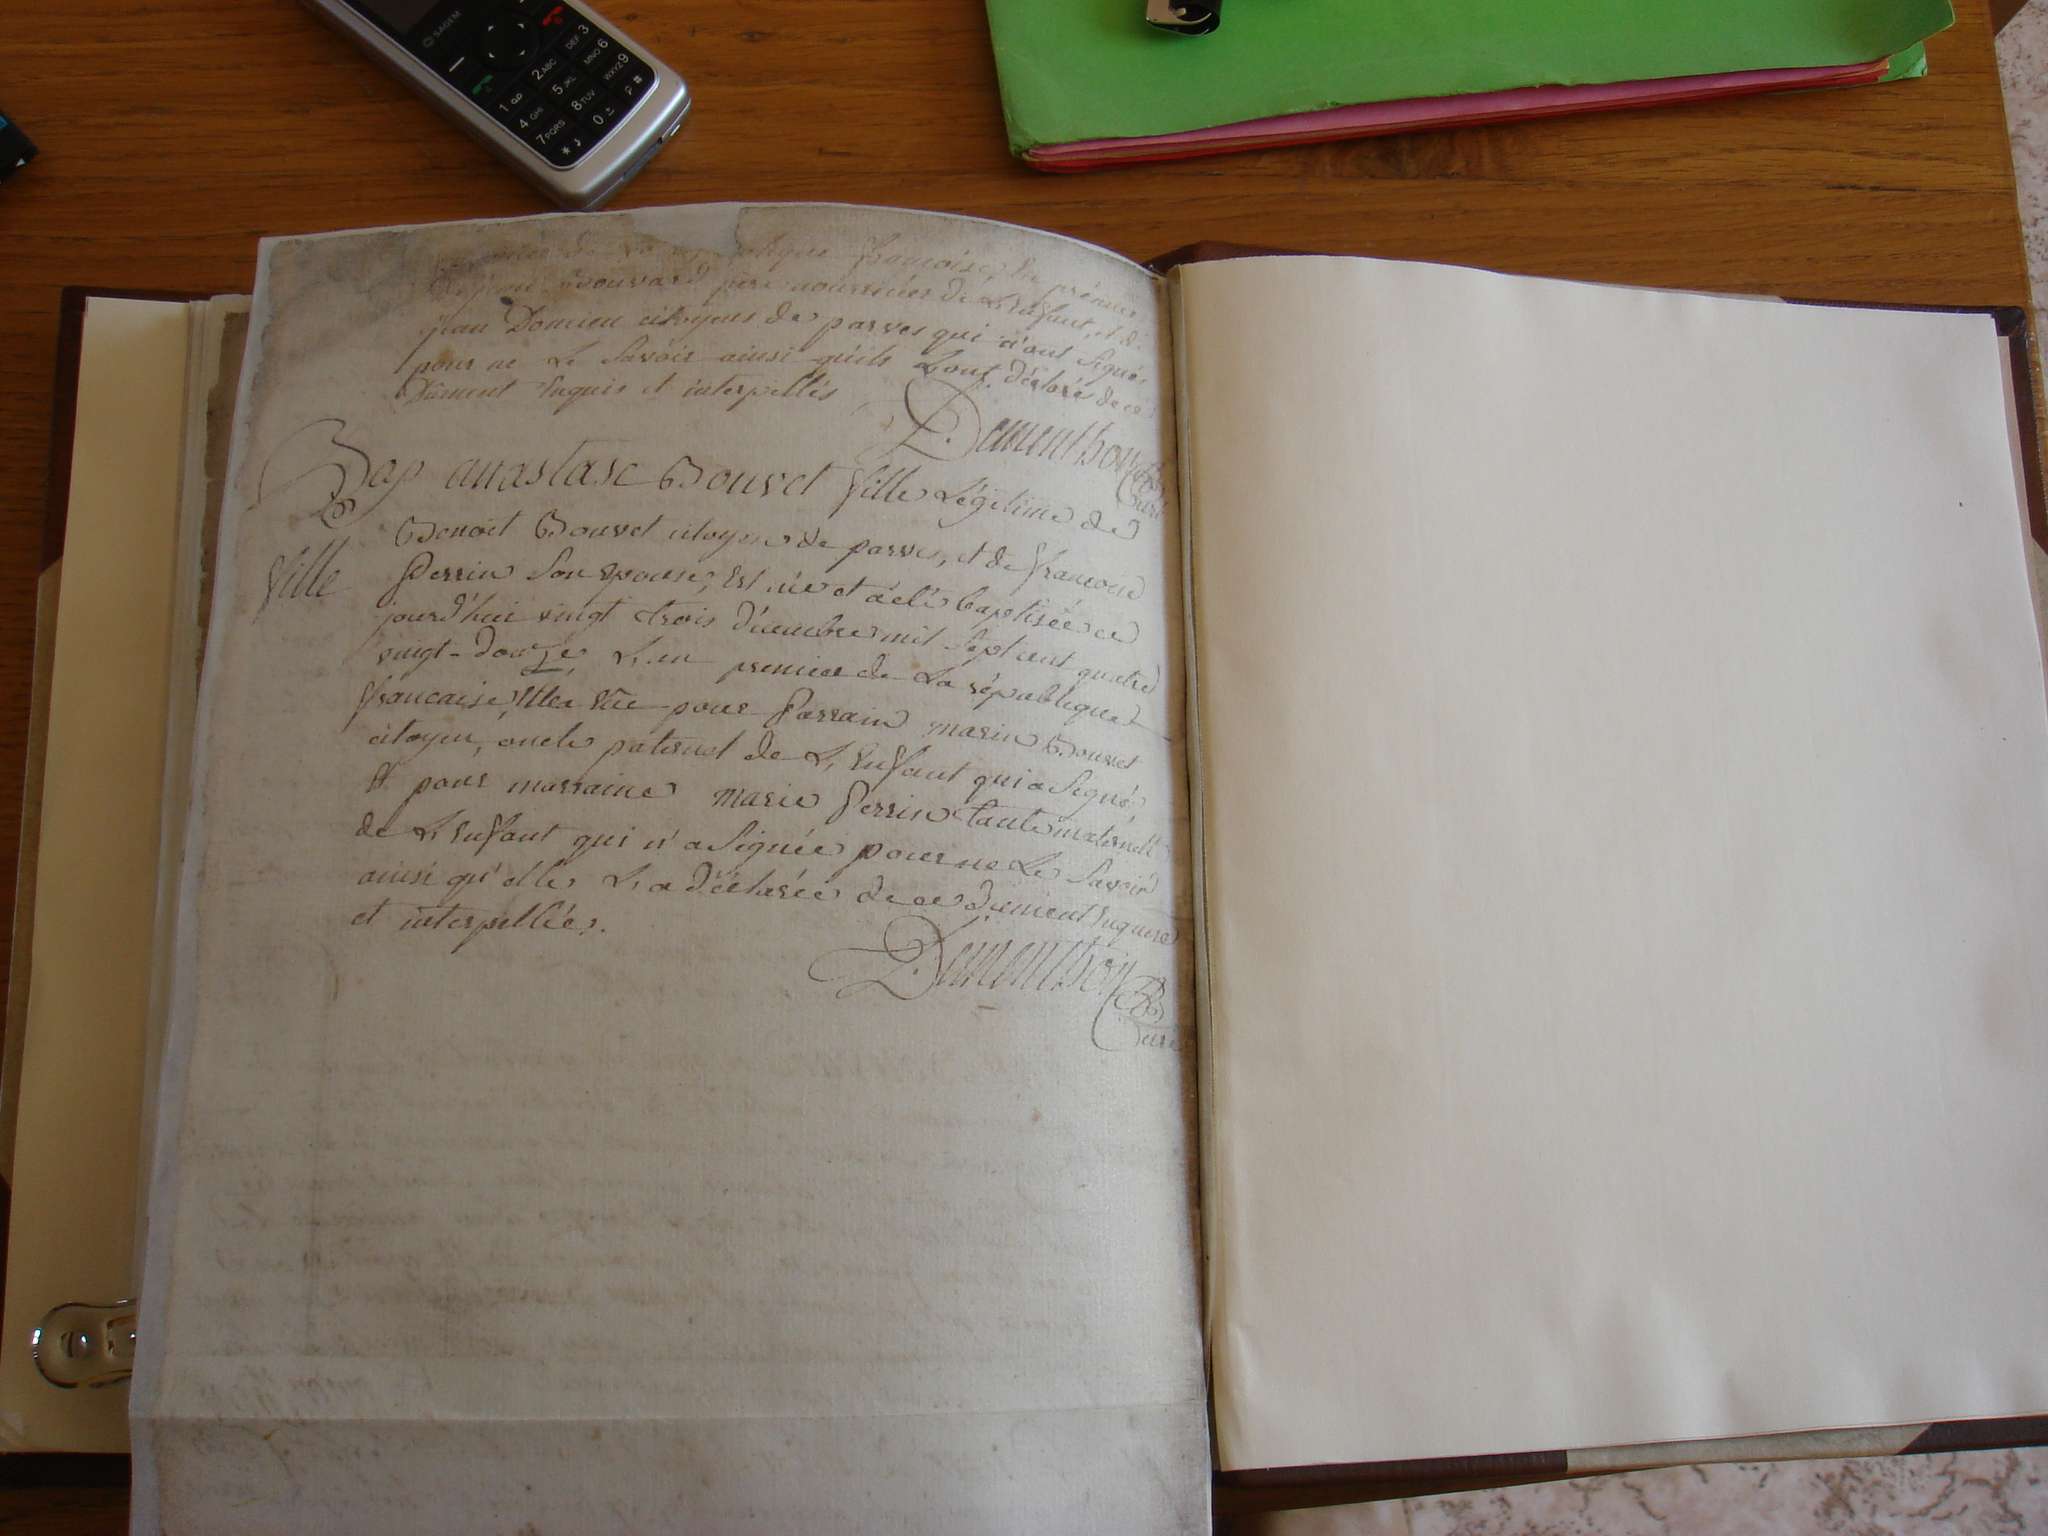 SAGEM
1
2 ABC
DEF 3
4 GHI
5 JKL
MNO 6
7 PQRS
8 TUV
WXYZ 9
*
0
#
de la république françoise, le premier
Bouvard père nourricier de L'Enfant, et de
jean Domien citoyens de parves qui n'ont signés
pour ne Le Savoir ainsi qu'ils L'ont déclaré de ce
Dûment Enquis et interpellés
Dementhon
Curé
Bap anastasc Bouvet fille Légitime de
fille
Benoit Bouvet citoyen de parves, et de francoise
Perrin Son Epouse, Est née et a été baptisée ce
jourd'hui vingt trois décembre mil sept cent quatre
vingt-douze, L'an premier de La république
francaise, Elle a Eüe pour Parrain marin Bouvet
citoyen, oncle paternel de L'Enfant qui a Signé
et pour marraine marie Perrin tante maternelle
de L'Enfant qui n'a Signée pour ne Le Savoir
ainsi qu'elle L'a déclarée de ce dûment Enquise
et interpellée.
Dementhon
Curé